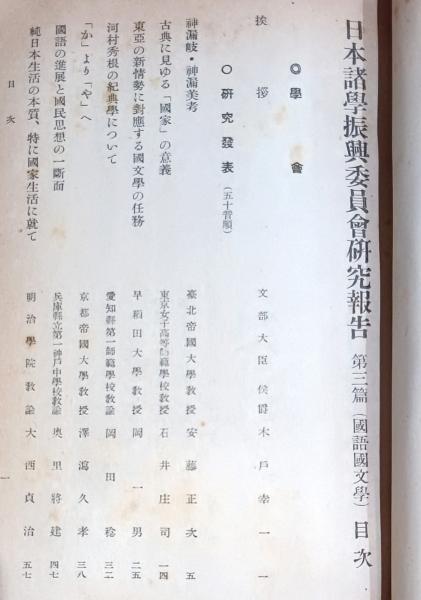 日本諸學振興委員會研究報告 第三篇(國語國文學)目次
◎學會
挨拶 文部大臣 侯爵 木戸幸一 一
○研究發表(五十音順)
神漏岐・神漏美考 臺北帝國大學教授 安藤正次 五
古典に見ゆる「國家」の意義 東京女子高等師範學校教授 石井庄司 一四
東亞の新情勢に對應する國文學の任務 早稻田大學教授 岡一男 二五
河村秀根の紀典學について 愛知縣第一師範學校教諭 岡田稔 三二
「か」より「や」へ 京都帝國大學教授 澤瀉久孝 三八
國語の進展と國民思想の一斷面 兵庫縣立第一神戸中學校教諭 奥里將建 四七
純日本生活の本質、特に國家生活に就て 明治學院教諭 大西貞治 五七
目次 一